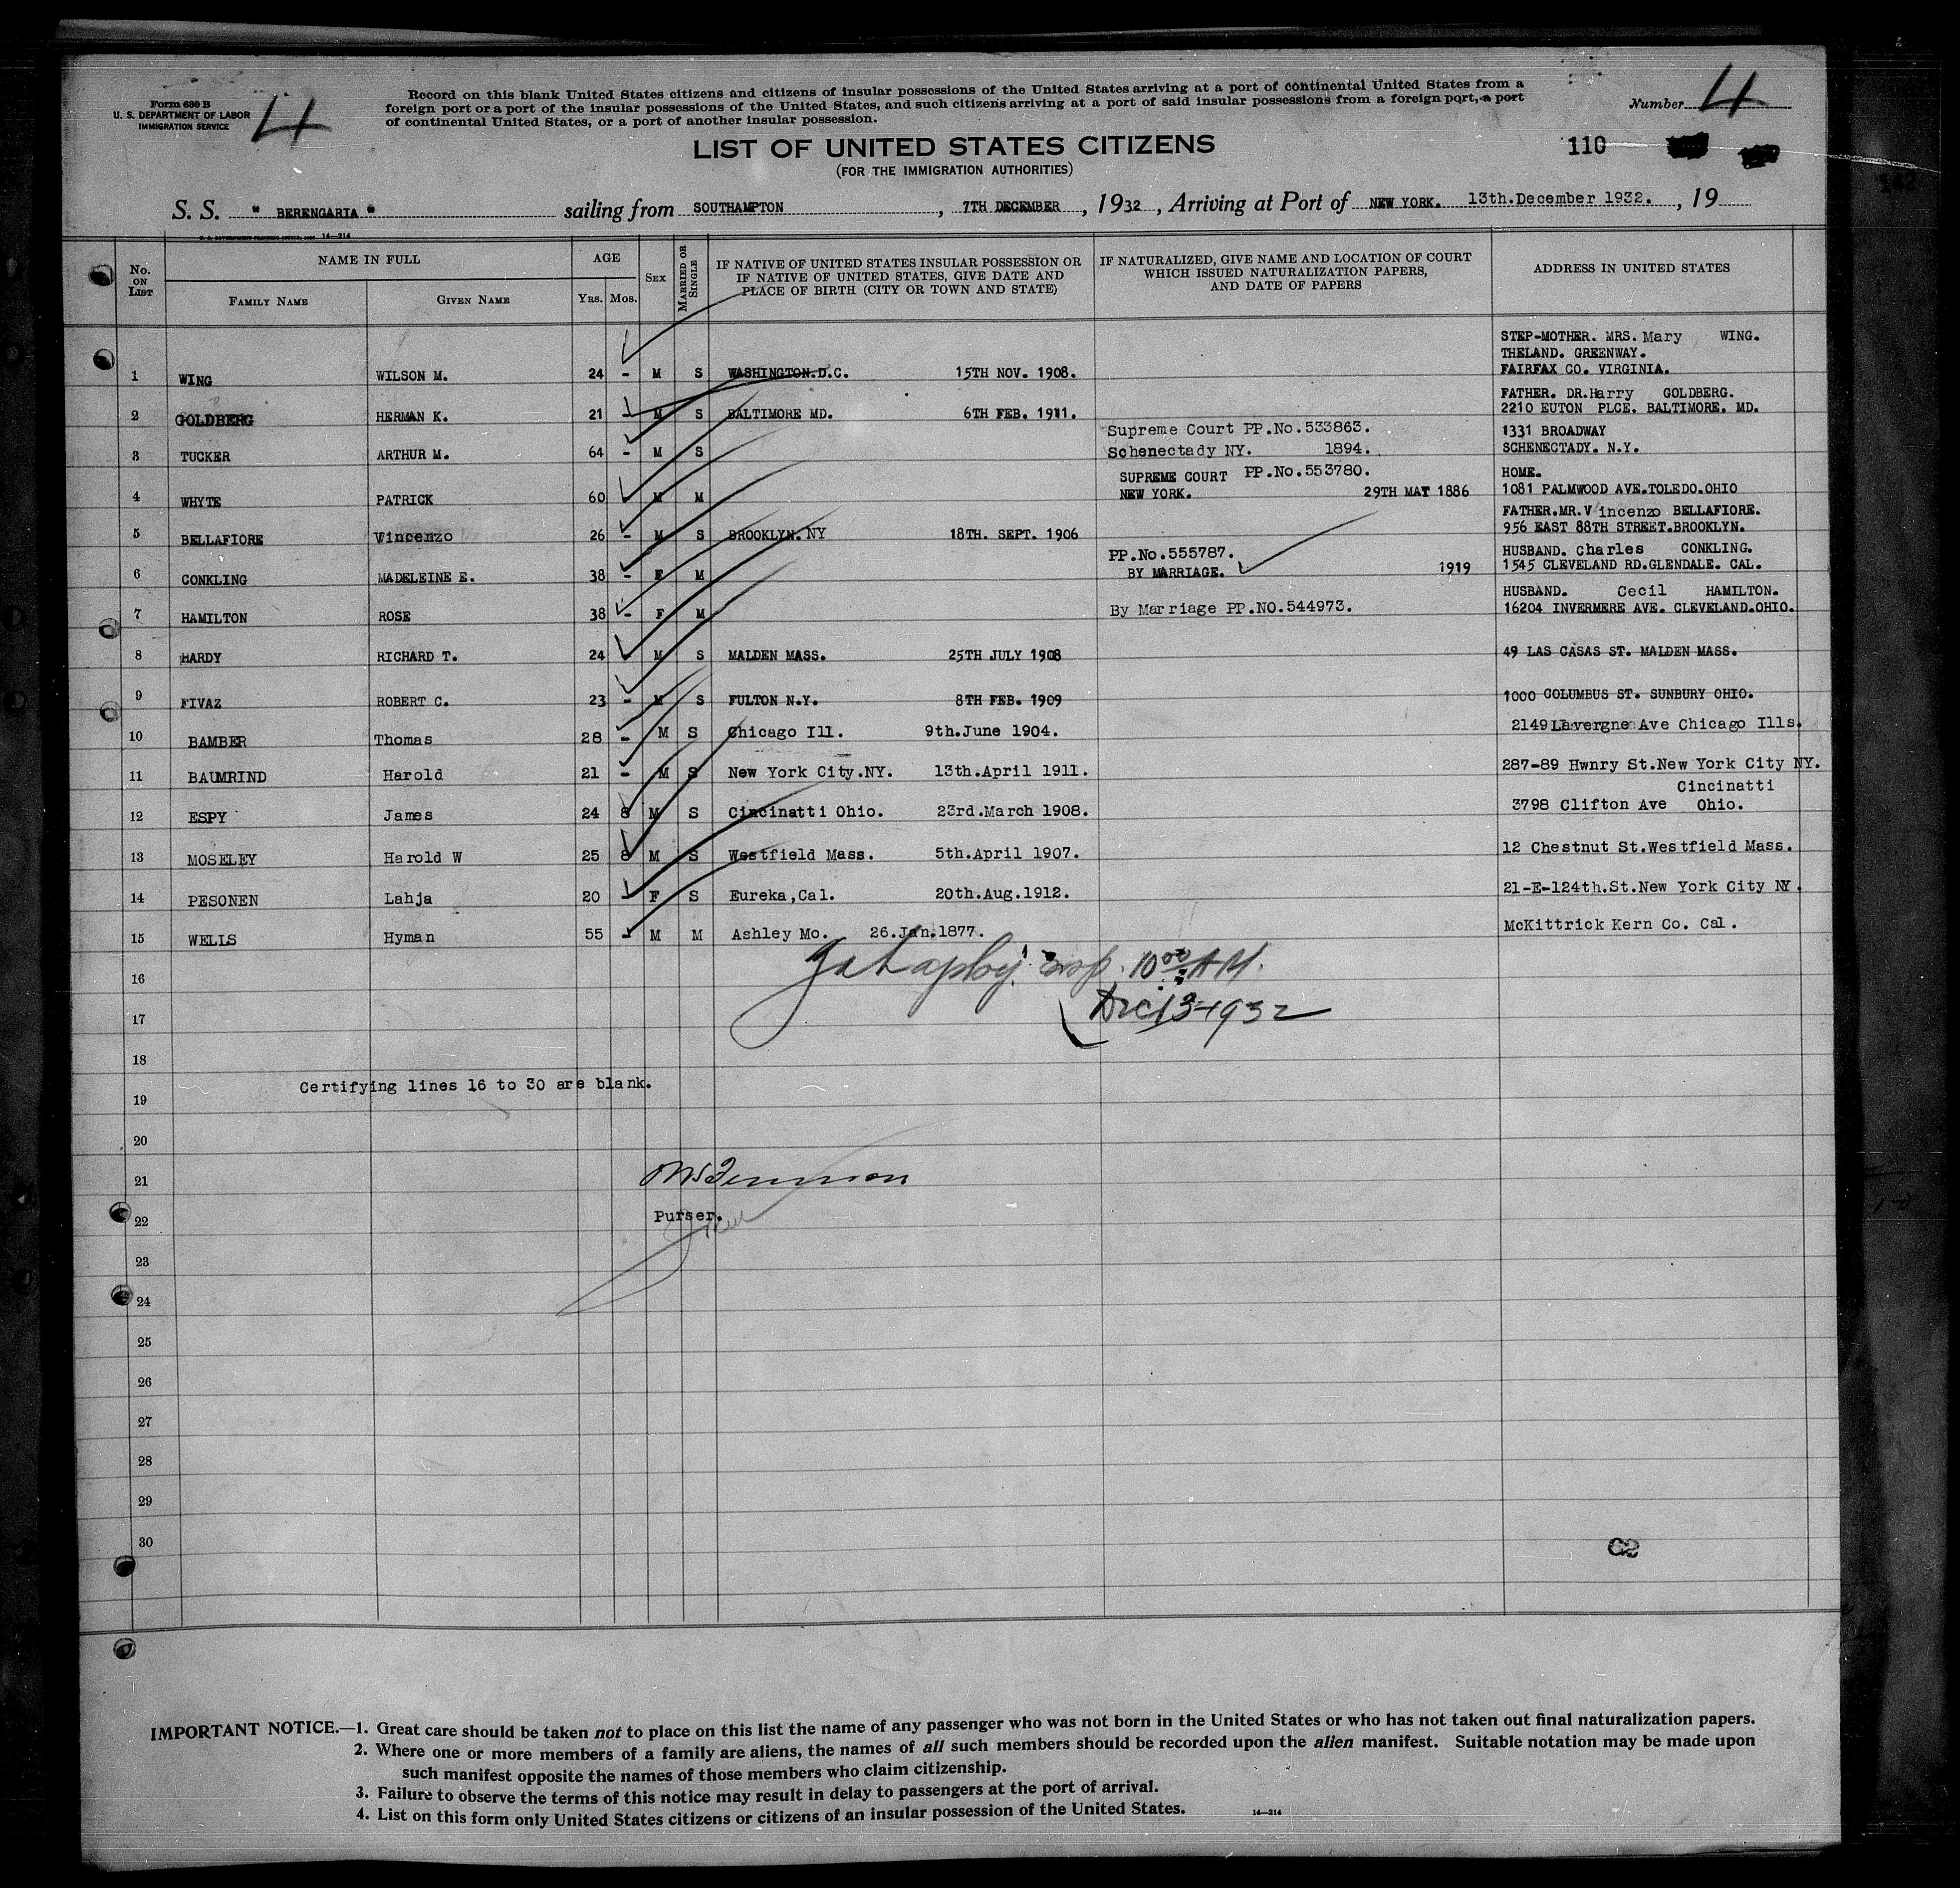 Form 630 B
U. S. DEPARTMENT OF LABOR
IMMIGRATION SERVICE
4
Record on this blank United States citizens and citizens of insular possessions of the United States arriving at a port of continental United States from a
foreign port or a port of the insular possessions of the United States, and such citizens arriving at a port of said insular possessions from a foreign port, a port
of continental United States, or a port of another insular possession.
Number 4
LIST OF UNITED STATES CITIZENS
(FOR THE IMMIGRATION AUTHORITIES)
110
S. S. " BERENGARIA " sailing from SOUTHAMPTON, 7TH DECEMBER, 1932, Arriving at Port of NEW YORK. 13th.December 1932., 19
14—214
No. ON LIST NAME IN FULL AGE SEX MARRIED OR SINGLE IF NATIVE OF UNITED STATES INSULAR POSSESSION OR IF NATIVE OF UNITED STATES, GIVE DATE AND PLACE OF BIRTH (CITY OR TOWN AND STATE) IF NATURALIZED, GIVE NAME AND LOCATION OF COURT WHICH ISSUED NATURALIZATION PAPERS, AND DATE OF PAPERS ADDRESS IN UNITED STATES
FAMILY NAME GIVEN NAME YRS. MOS.
STEP-MOTHER. MRS. Mary WING.
THELAND. GREENWAY.
1 WING WILSON M. 24 - M S WASHINGTON.D.C. 15TH NOV. 1908. FAIRFAX CO. VIRGINIA.
FATHER. DR.Harry GOLDBERG.
2 GOLDBERG HERMAN K. 21 - M S BALTIMORE MD. 6TH FEB. 1911. 2210 EUTON PLCE. BALTIMORE. MD.
Supreme Court PP.No.533863. 1331 BROADWAY
3 TUCKER ARTHUR M. 64 - M S Schenectady NY. 1894. SCHENECTADY. N.Y.
SUPREME COURT PP.No.553780. HOME.
4 WHYTE PATRICK 60 M M NEW YORK. 29TH MAY 1886 1081 PALMWOOD AVE.TOLEDO.OHIO
FATHER.MR.Vincenzo BELLAFIORE.
5 BELLAFIORE Vincenzo 26 - M S BROOKLYN. NY 18TH. SEPT. 1906 956 EAST 88TH STREET.BROOKLYN.
PP.No.555787. HUSBAND. Charles CONKLING.
6 CONKLING MADELEINE E. 38 - F M BY MARRIAGE. 1919 1545 CLEVELAND RD.GLENDALE. CAL.
HUSBAND. Cecil HAMILTON.
7 HAMILTON ROSE 38 - F M By Marriage PP.NO.544973. 16204 INVERMERE AVE. CLEVELAND.OHIO.
8 HARDY RICHARD T. 24 - M S MALDEN MASS. 25TH JULY 1908 49 LAS CASAS ST. MALDEN MASS.
9 FIVAZ ROBERT C. 23 - M S FULTON N.Y. 8TH FEB. 1909 1000 COLUMBUS ST. SUNBURY OHIO.
10 BAMBER Thomas 28 - M S Chicago Ill. 9th.June 1904. 2149 Lavergne Ave Chicago Ills.
11 BAUMRIND Harold 21 - M S New York City.NY. 13th.April 1911. 287-89 Hwnry St.New York City NY.
Cincinatti
12 ESPY James 24 8 M S Cincinatti Ohio. 23rd.March 1908. 3798 Clifton Ave Ohio.
13 MOSELEY Harold W 25 8 M S Westfield Mass. 5th.April 1907. 12 Chestnut St.Westfield Mass.
14 PESONEN Lahja 20 - F S Eureka,Cal. 20th.Aug.1912. 21-E-124th.St.New York City NY.
15 WELLS Hyman 55 - M M Ashley Mo. 26.Jan.1877. McKittrick Kern Co. Cal.
16 insp. 10 00 AM.
17 Dec 13-1932
18
Certifying lines 16 to 30 are blank.
19
20
21
22 Purser.
23
24
25
26
27
28
29
30
C2
IMPORTANT NOTICE.—1. Great care should be taken not to place on this list the name of any passenger who was not born in the United States or who has not taken out final naturalization papers.
2. Where one or more members of a family are aliens, the names of all such members should be recorded upon the alien manifest. Suitable notation may be made upon
such manifest opposite the names of those members who claim citizenship.
3. Failure to observe the terms of this notice may result in delay to passengers at the port of arrival.
4. List on this form only United States citizens or citizens of an insular possession of the United States. 14—214